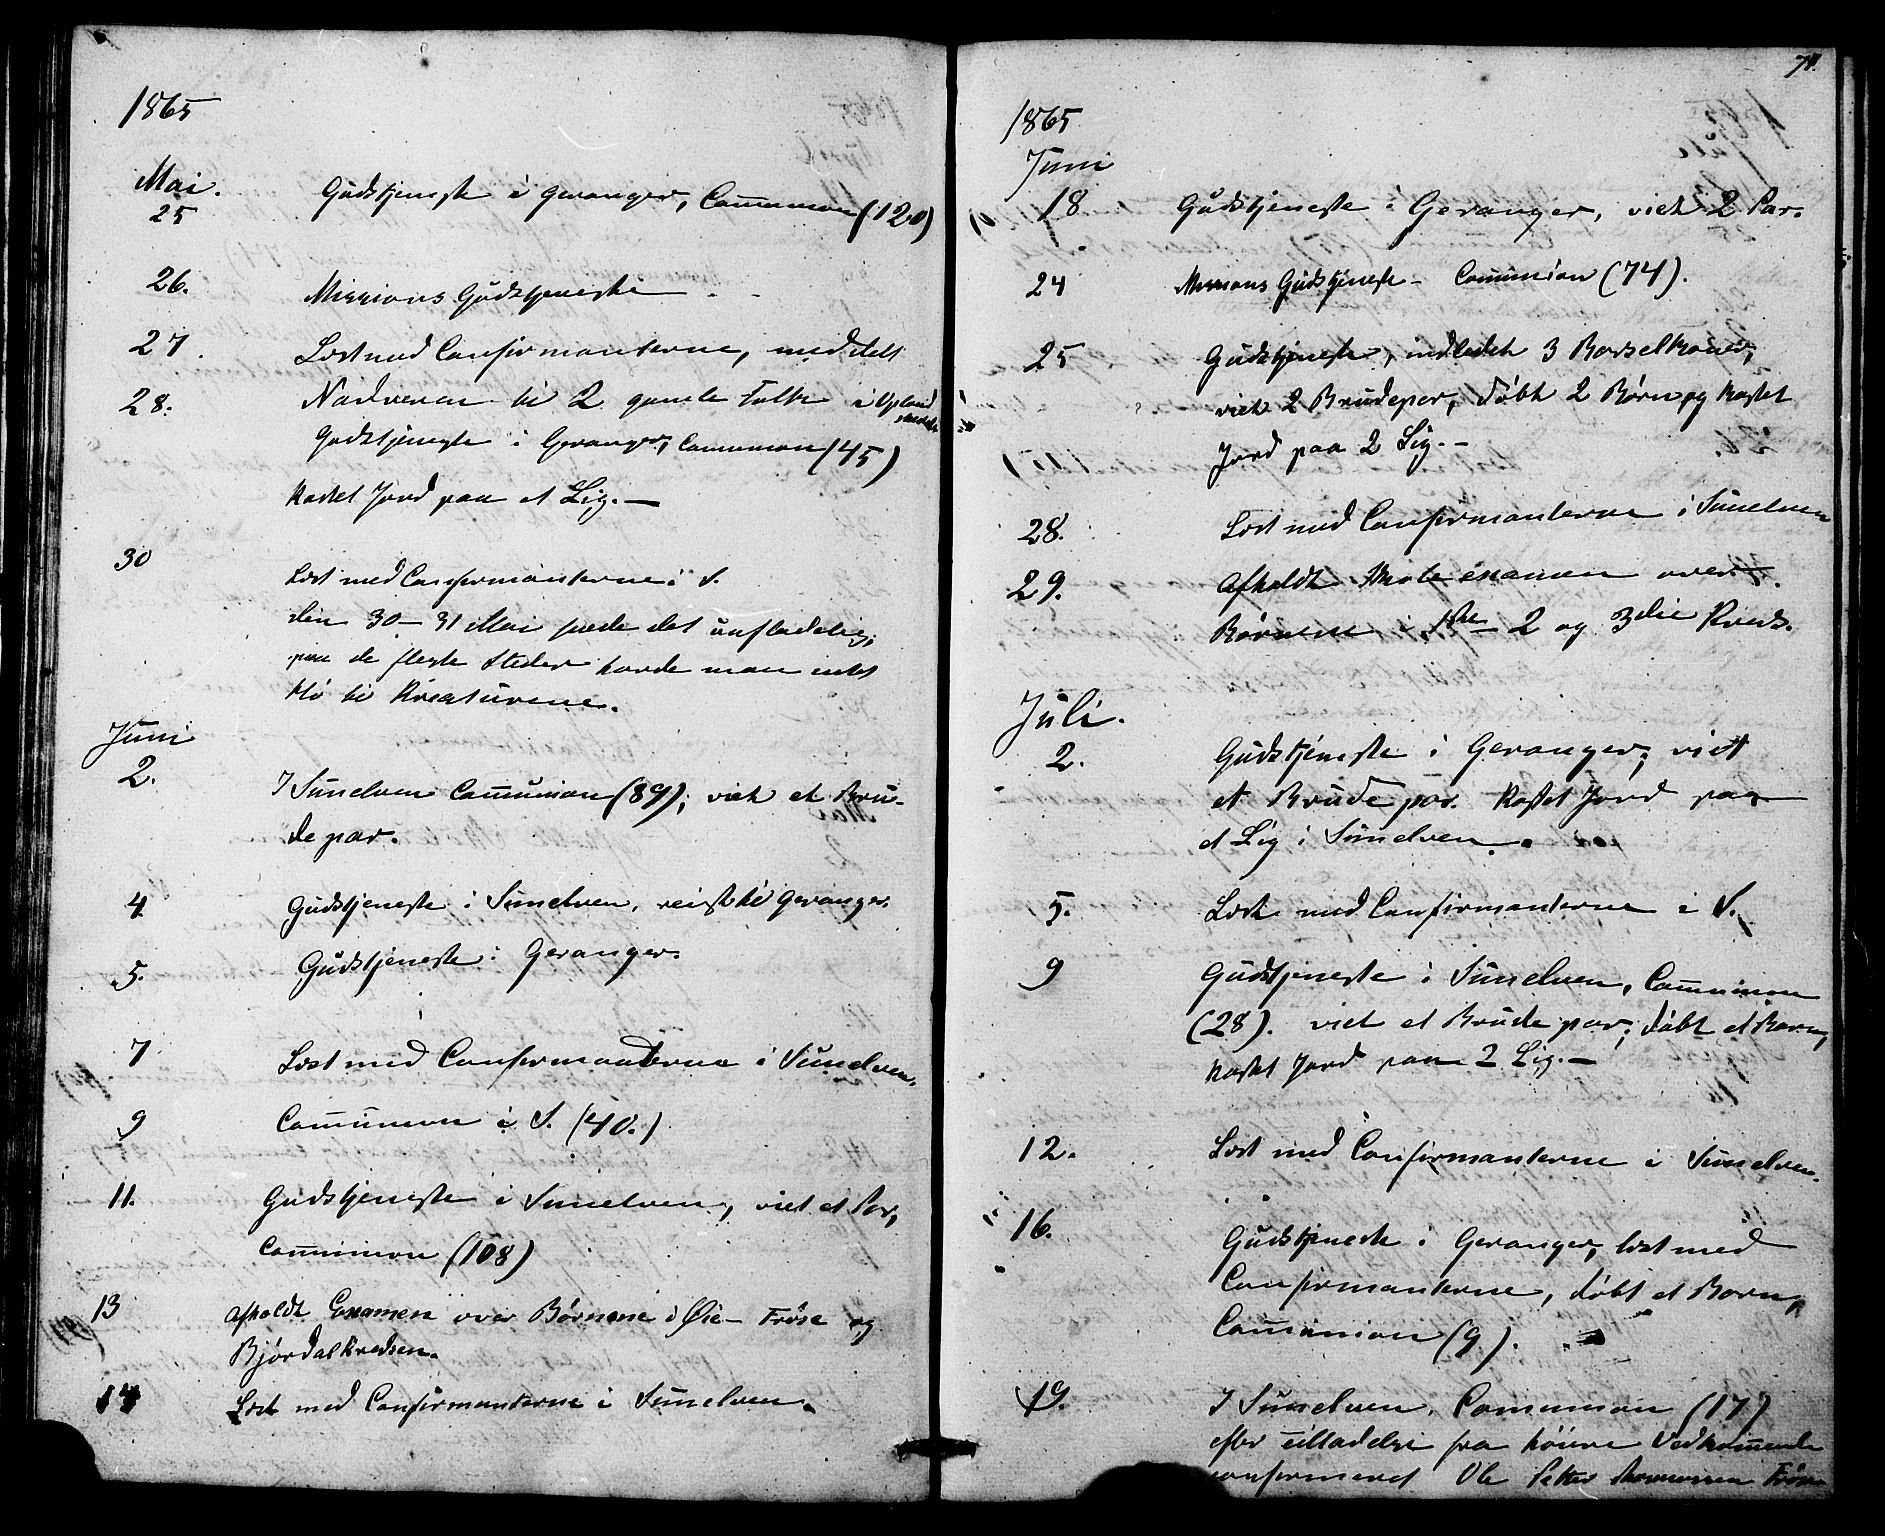 1865
Mai.
25 Gudstjeneste i Geranger, Communion (120)
26. Missions Gudstjeneste
27. Læst med Confirmanterne, meddelt
28. Nadveren til 2 gamle Folk i Opland
Gudstjeneste i Geranger, Communion (45)
kastet Jord paa et Lig. —
30 Læst med Confirmanterne i S.
den 30 - 31 Mai det
paa de fleste Steder havde man intet
Hø til Kreaturene.
Juni
2. I Sunelven Communion (89); viet et Bru-
depar.
4. Gudstjeneste i Sunelven, reist til Geranger.
5. Gudstjeneste i Geranger.
7 Læst med Confirmanterne i Sunelven.
9 Communion i S. (40.)
11. Gudstjeneste i Sunelven, viet et Par,
Communion (108)
13 Afholdt Examen over Børnene i Øie - Frøse og
Bjørdalkredsen.
14 Læst med Confirmanterne i Sunelven.
71.
1865
Juni
18 Gudstjeneste i Geranger, viet 2 Par.
24 Missions Gudstjeneste - Communion (74).
25 Gudstjeneste, indledet 3 Barselkoner,
viet 2 Brudepar, døbt 2 Børn og kastet
Jord paa 2 Lig. -
28. Læst med Confirmanterne i Sunelven
29. Afholdt Skoleexamen over
Børnene i 1ste 2 og 3die Kreds.
Juli.
2. Gudstjeneste i Geranger; viet
et Brudepar. Kastet Jord paa
et Lig i Sunelven.
5. Læst med Confirmanterne i S.
9 Gudstjeneste i Sunelven, Communion
(28). viet et Brudepar; døbt et Barn,
kastet Jord paa 2 Lig. —
12. Læst med Confirmanterne i Sunelven.
16. Gudstjeneste i Geranger, læst med
Confirmanterne, døbt et Barn,
Communion (9).
19. I Sunelven, Communion (17)
efter Tilladelse fra høiere Vedkommende
confirmeret Ole Petter Rasmussen Frøse